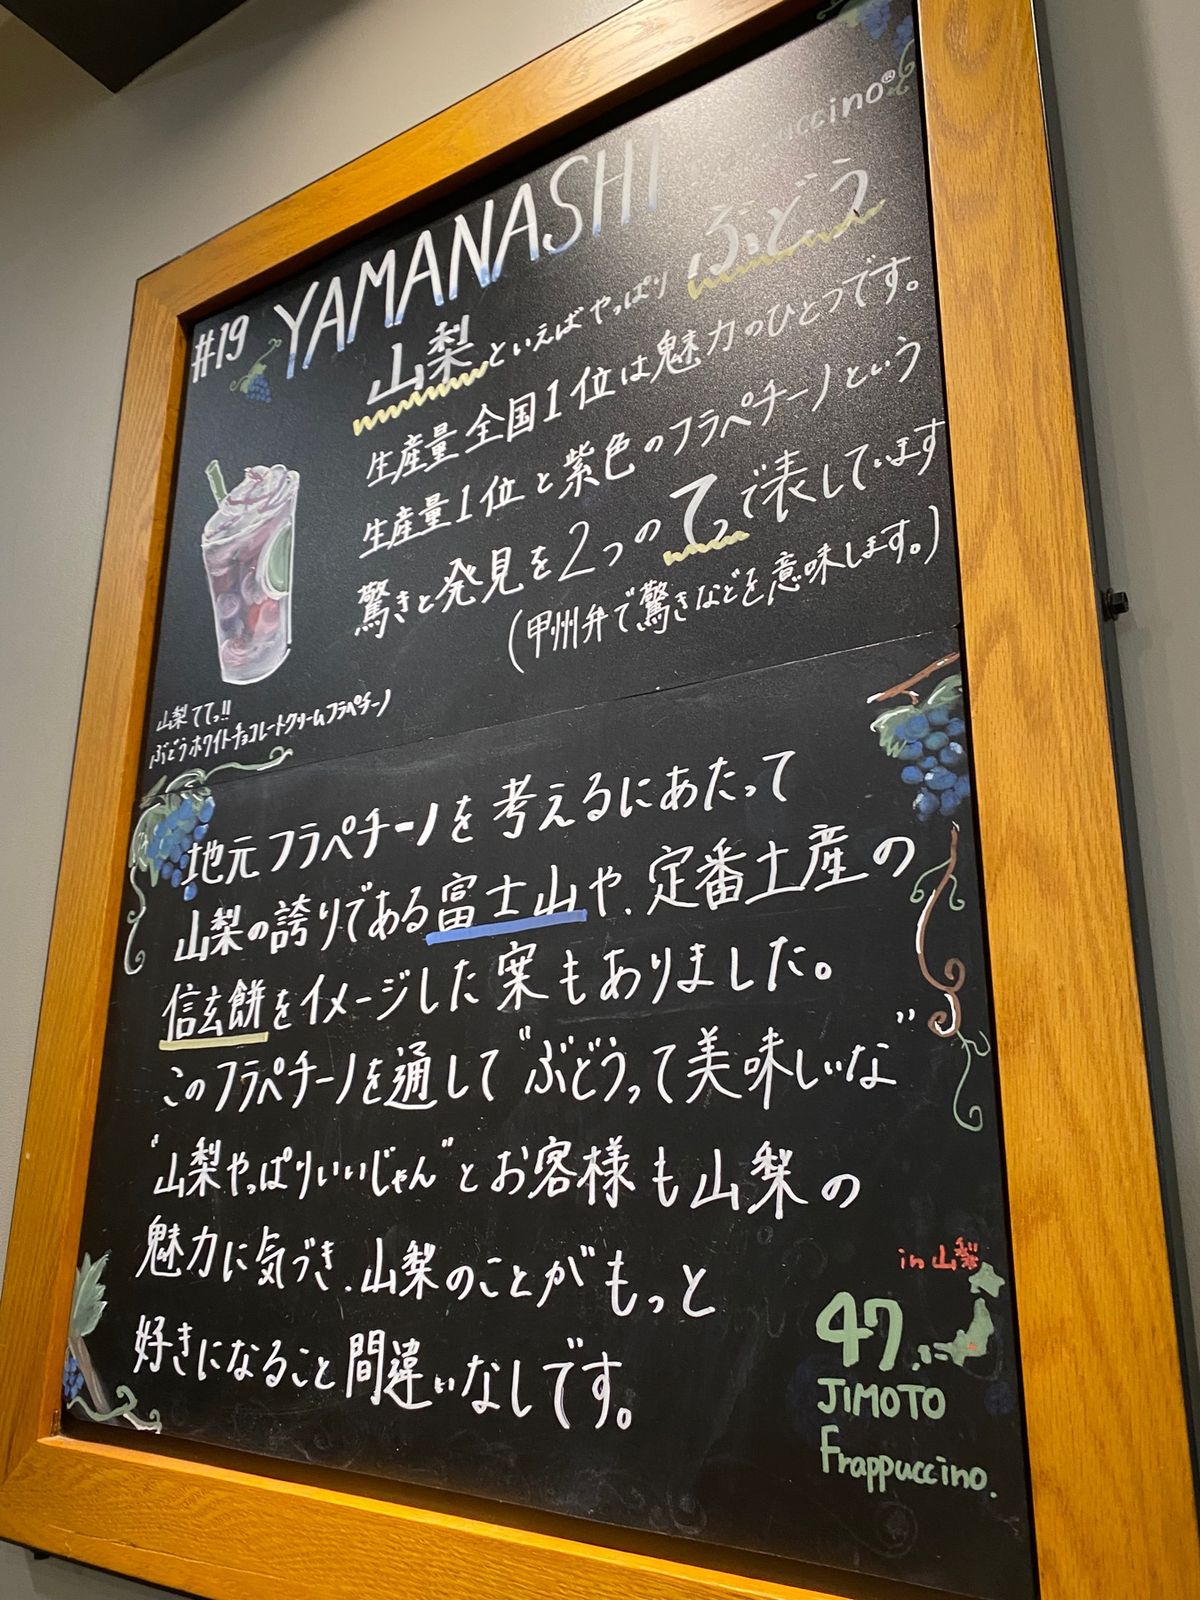 #19 YAMANASHI
山梨といえばやっぱりぶどう
生産量全国1位は魅力のひとつです。
生産量1位と紫色のフラペチーノという
驚きと発見を2つのてっで表しています
(甲州弁で驚きなどを意味します。)
山梨ててっ!!
ぶどうホワイトチョコレートクリームフラペチーノ
地元フラペチーノを考えるにあたって
山梨の誇りである富士山や、定番土産の
信玄餅をイメージした案もありました。
このフラペチーノを通して"ぶどうって美味しいな"
"山梨やっぱりいいじゃん"とお客様も山梨の
魅力に気づき、山梨のことがもっと
好きになること間違いなしです。
in 山梨
47
JIMOTO
Frappuccino.